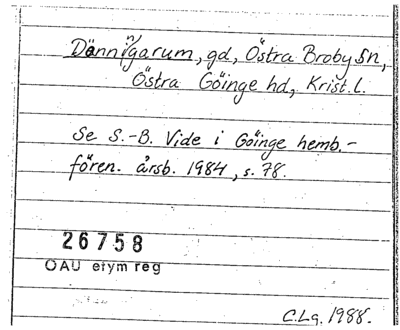 Dänningarum, gd, Östra Broby Sn,
Östra Göinge hd, Krist. l.
Se S.-B. Vide i Göinge hemb.-
fören. årsb. 1984, s. 78.
26758
OAU etym reg
C.Lg. 1988.